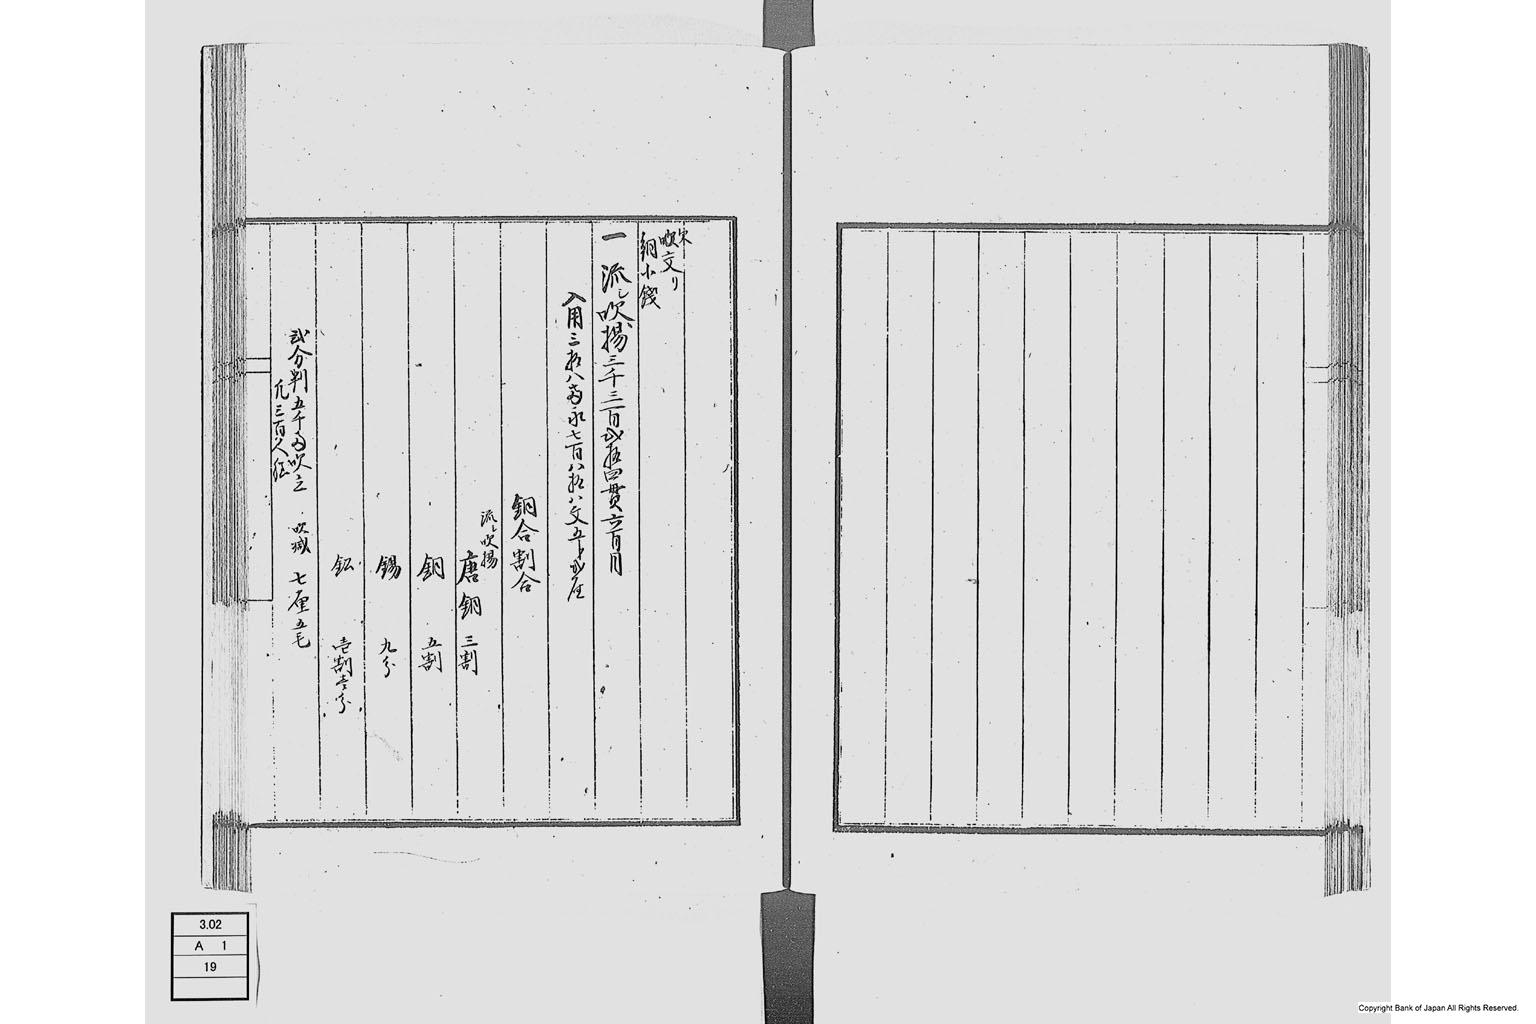 吹交り
銅小錢
一 流し吹揚三千三百弐拾四貫六百目
入用三拾八両永七百八拾八文五分弐厘
銅合割合
流し吹揚
唐銅 三割
銅 五割
錫 九分
鈆 壱割壱分
弐分判五千両吹立 吹減 七厘五毛
凡三百人
3.02
A 1
19
Copyright Bank of Japan All Rights Reserved.